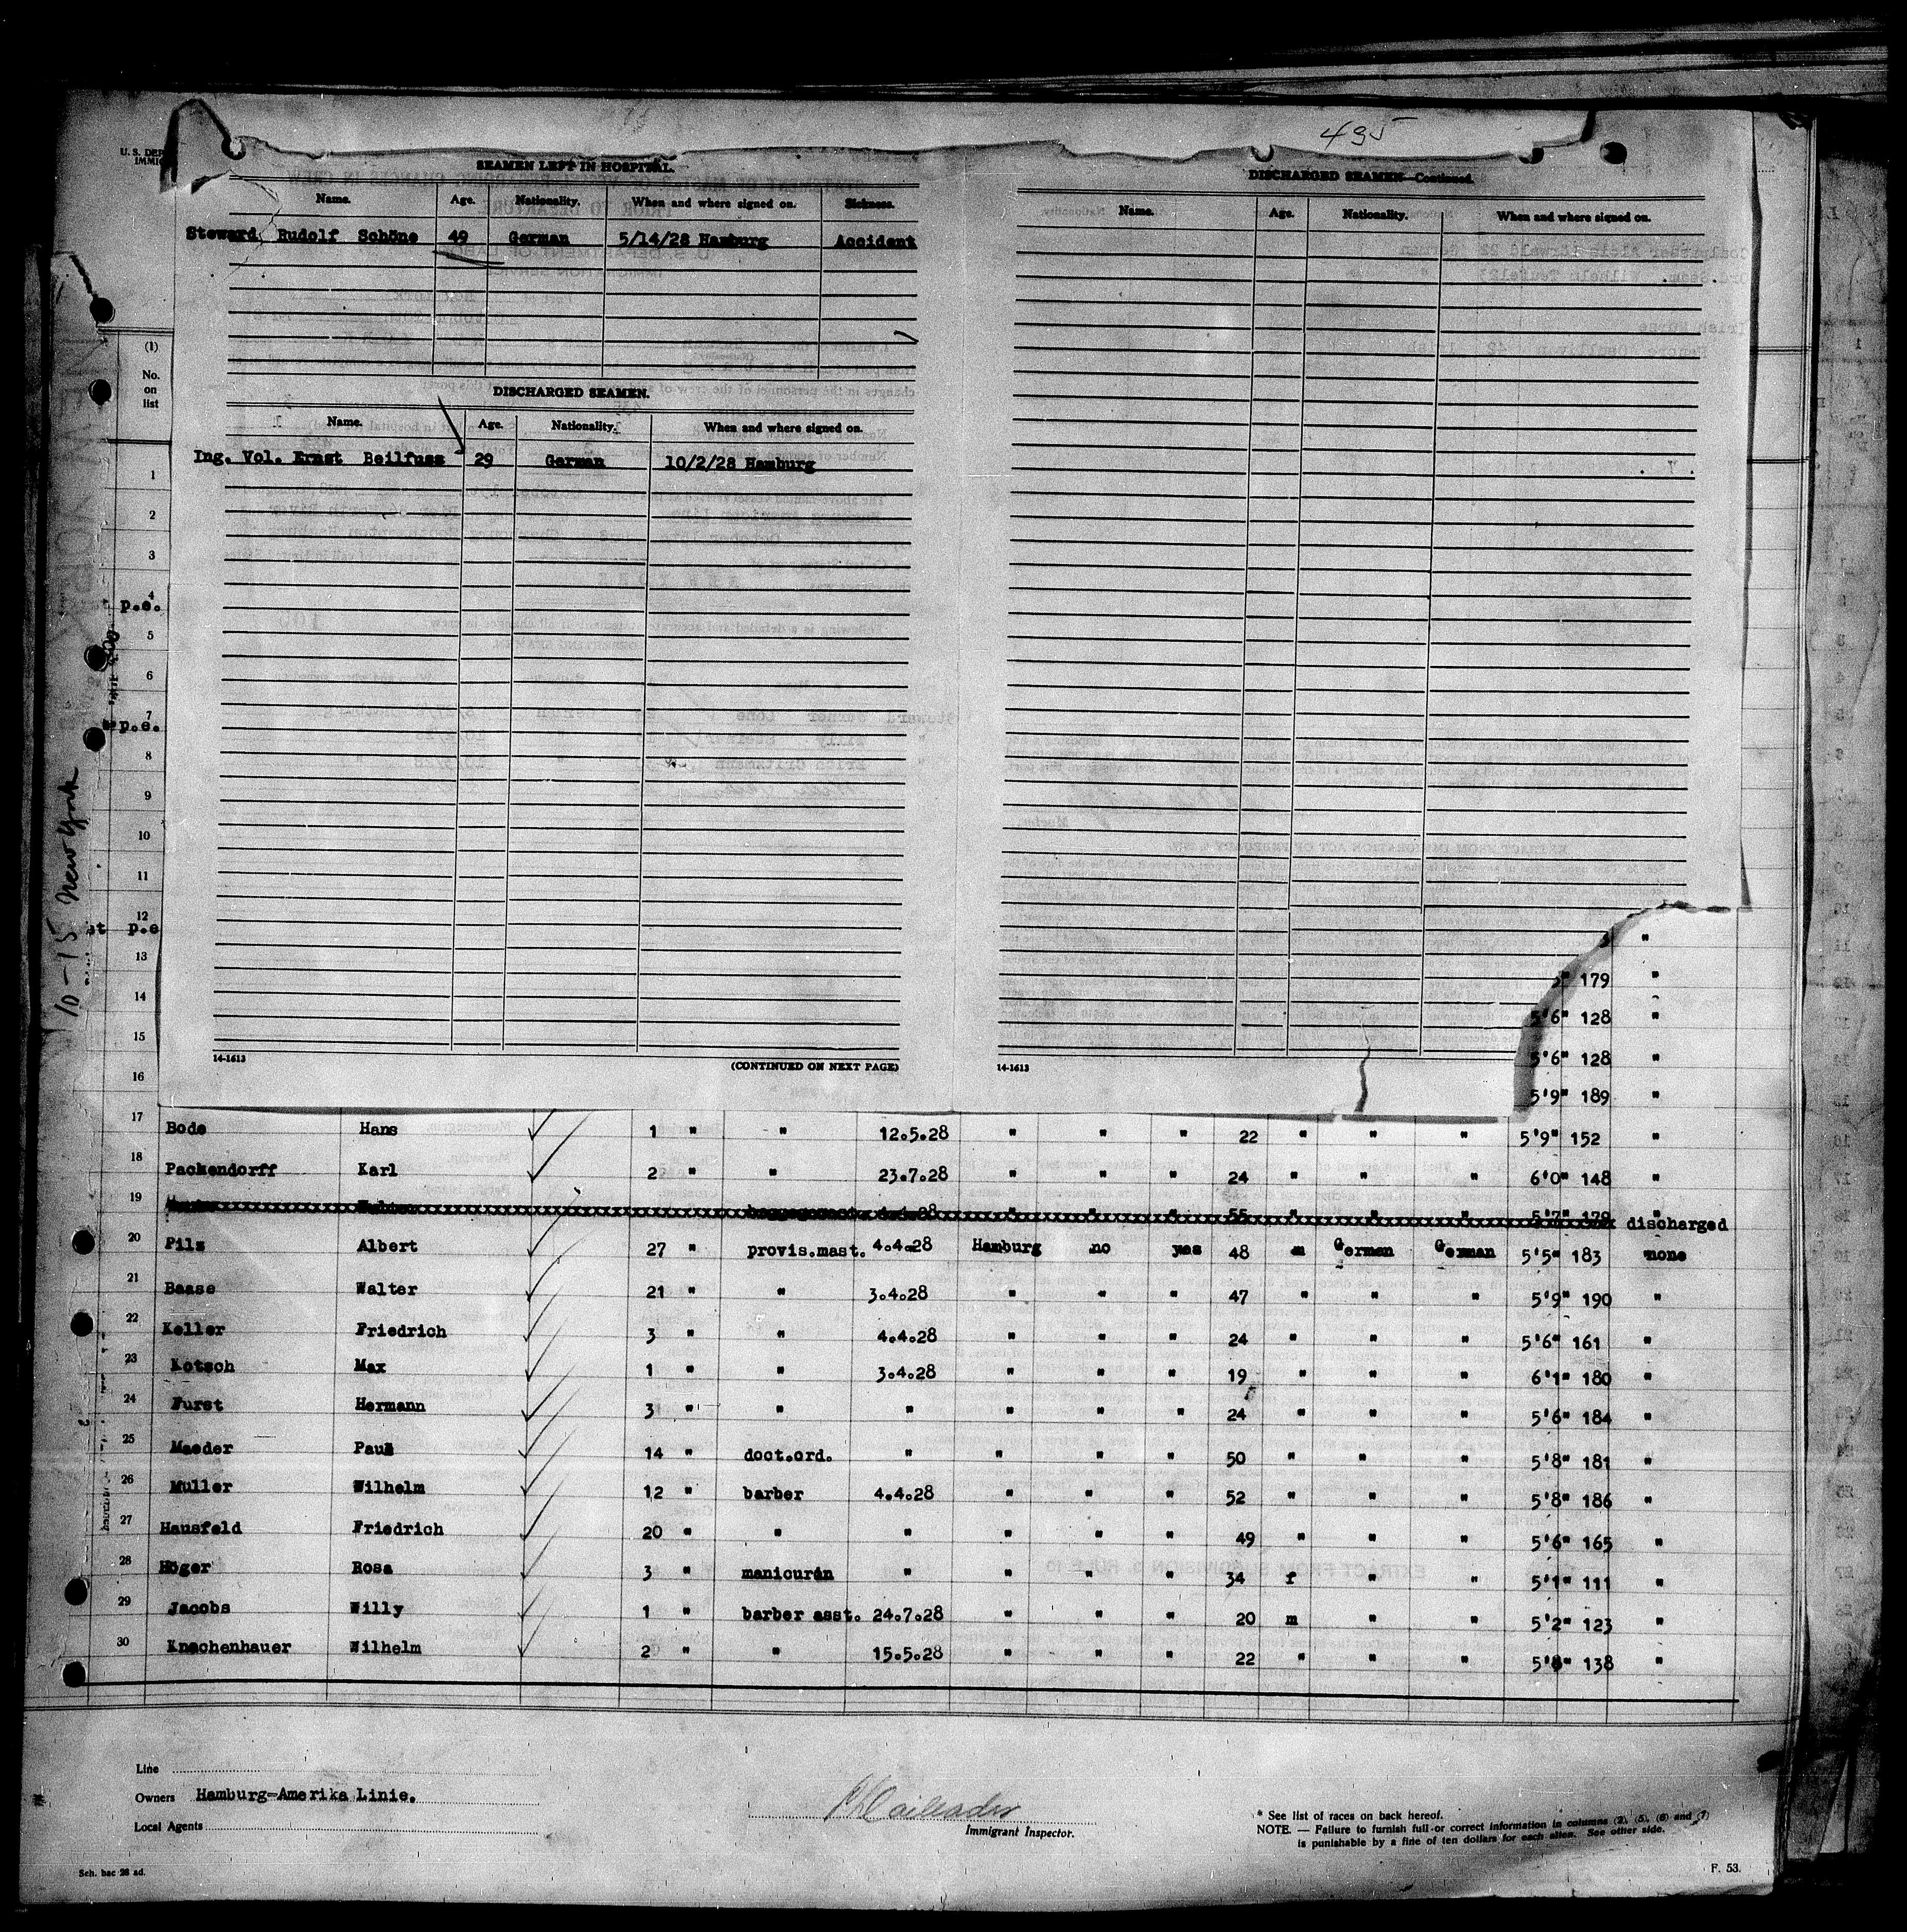 495
U. S. DEP
IMMIG
SEAMEN LEFT IN HOSPITAL.
Name. Age. Nationality. When and where signed on. Sickness.
Steward Rudolf Schöne 49 German 5/14/28 Hamburg Accident
DISCHARGED SEAMEN.
Name. Age. Nationality. When and where signed on.
Ing. Vol. Ernst Beilfuss 29 German 10/2/28 Hamburg
14-1613 (CONTINUED ON NEXT PAGE)
DISCHARGED SEAMEN—Continued.
Name. Age. Nationality. When and where signed on.
14-1613
(1)
No.
on
list
1
2
3
4
p.e.
5
6
7
p.e.
8
9
10
11
12
st p.e
13
14
15
16
10-15 New York
"
5" 179 "
5'6" 128 "
5'6" 128 "
5'9" 189 "
17 Bode Hans 1 " " 12.5.28 " " " 22 " " " 5'9" 152 "
18 Packendorff Karl 2 " " 23.7.28 " " " 24 " " " 6'0" 148 "
19 " " " 55 " " " 5'7" 179 discharged
20 Pilz Albert 27 " provis.mast. 4.4.28 Hamburg no yes 48 m German German 5'5" 183 none
21 Baase Walter 21 " " 3.4.28 " " " 47 " " " 5'9" 190 "
22 Keller Friedrich 3 " " 4.4.28 " " " 24 " " " 5'6" 161 "
23 Kotsch Max 1 " " 3.4.28 " " " 19 " " " 6'1" 180 "
24 Furst Hermann 3 " " " " " " 24 " " " 5'6" 184 "
25 Maeder Paul 14 " doct.ord. " " " " 50 " " " 5'8" 181 "
26 Muller Wilhelm 12 " barber 4.4.28 " " " 52 " " " 5'8" 186 "
27 Hausfeld Friedrich 20 " " " " " " 49 " " " 5'6" 165 "
28 Höger Rosa 3 " manicurén " " " " 34 f " " 5'1" 111 "
29 Jacobs Willy 1 " barber asst. 24.7.28 " " " 20 m " " 5'2" 123 "
30 Knachenhauer Wilhelm 2 " " 15.5.28 " " " 22 " " " 5'8" 138 "
Line
Owners Hamburg-Amerika Linie.
Local Agents
Immigrant Inspector.
* See list of races on back hereof.
NOTE. — Failure to furnish full or correct information in columns (2), (5), (6) and (7)
is punishable by a fine of ten dollars for each alien. See other side.
Sch. bac 28 ad.
F. 53.